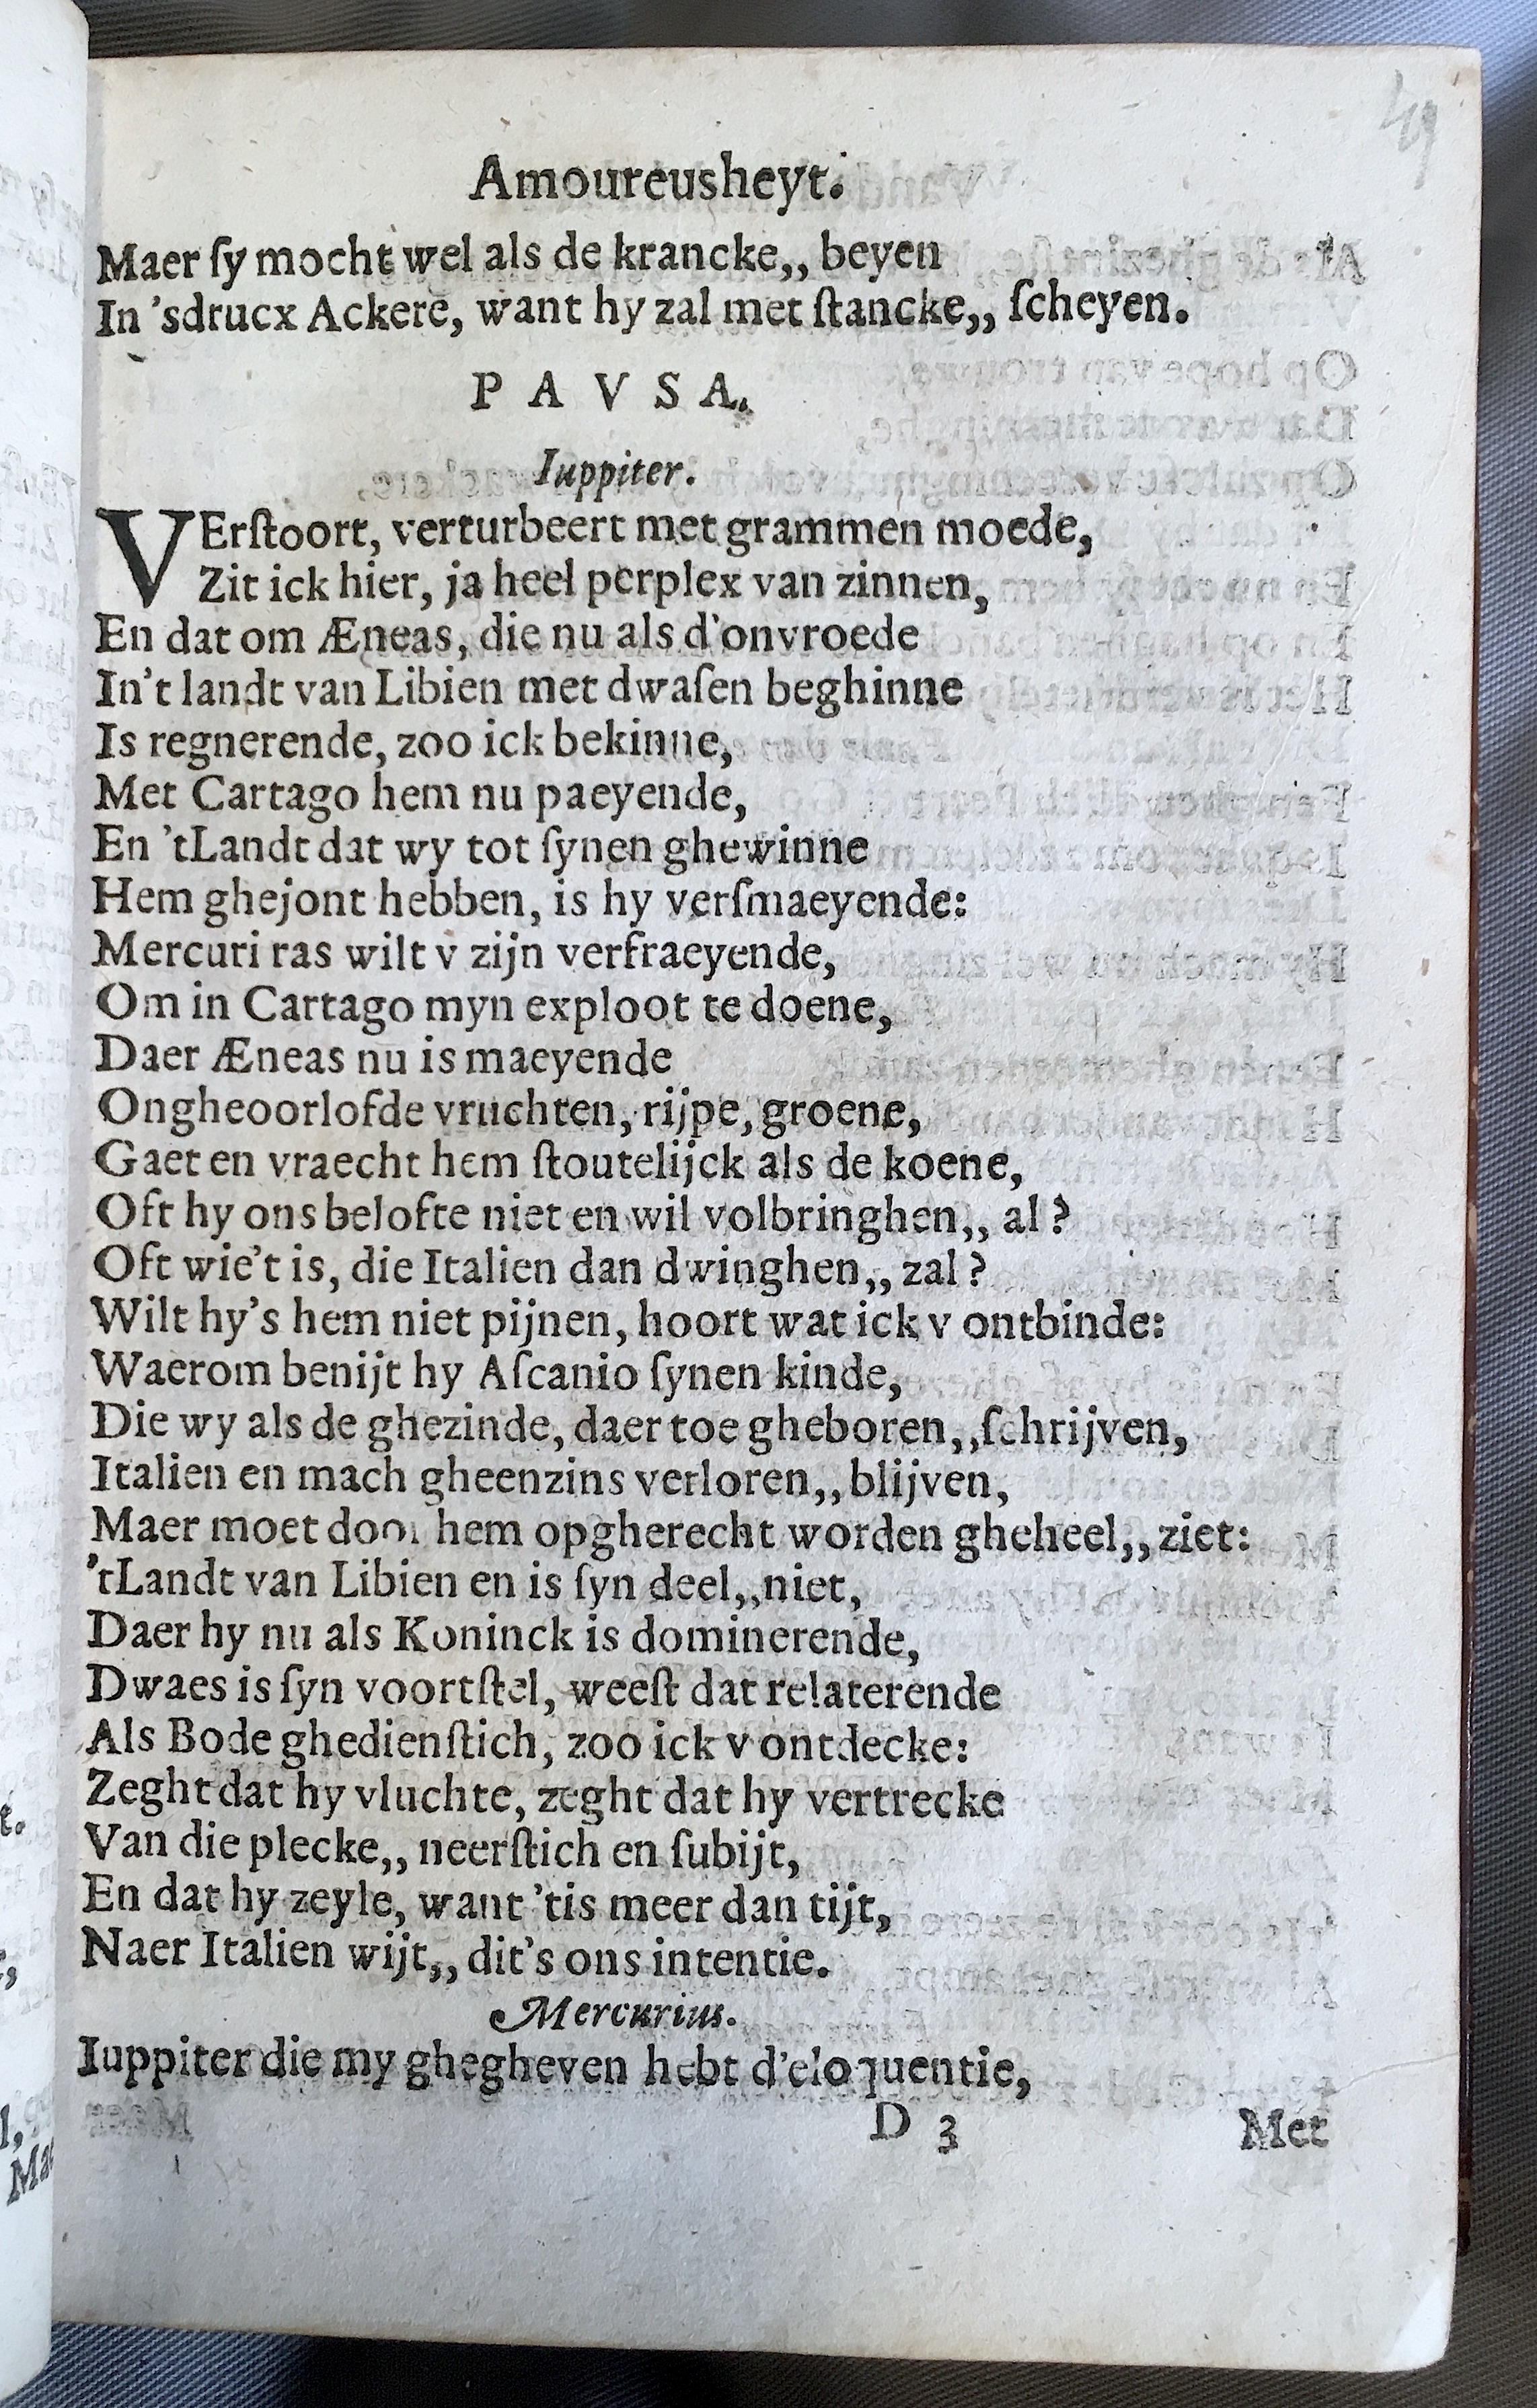 49
Amoureusheyt.
Maer ſy mocht wel als de krancke,, beyen
In 'sdrucx Ackere, want hy zal met ſtancke,, ſcheyen.
P A V S A.
Iuppiter.
VErſtoort, verturbeert met grammen moede,
Zit ick hier, ja heel perplex van zinnen,
En dat om Æneas, die nu als d'onvroede
In't landt van Libien met dwaſen beghinne
Is regnerende, zoo ick bekinne,
Met Cartago hem nu paeyende,
En 'tLandt dat wy tot ſynen ghewinne
Hem ghejont hebben, is hy verſmaeyende:
Mercuri ras wilt v zijn verfraeyende,
Om in Cartago myn exploot te doene,
Daer Æneas nu is maeyende
Ongheoorlofde vruchten, rijpe, groene,
Gaet en vraecht hem ſtoutelijck als de koene,
Oft hy ons belofte niet en wil volbringhen,, al?
Oft wie't is, die Italien dan dwinghen,, zal?
Wilt hy's hem niet pijnen, hoort wat ick v ontbinde:
Waerom benijt hy Aſcanio ſynen kinde,
Die wy als de ghezinde, daer toe gheboren,, ſchrijven,
Italien en mach gheenzins verloren,, blijven,
Maer moet door hem opgherecht worden gheheel,, ziet:
'tLandt van Libien en is ſyn deel,, niet,
Daer hy nu als Koninck is dominerende,
Dwaes is ſyn voortſtel, weeſt dat relaterende
Als Bode ghedienſtich, zoo ick v ontdecke:
Zeght dat hy vluchte, zeght dat hy vertrecke
Van die plecke,, neerſtich en ſubijt,
En dat hy zeyle, want 'tis meer dan tijt,
Naer Italien wijt,, dit's ons intentie.
Mercurius.
Iuppiter die my ghegheven hebt d'eloquentie,
D 3 Met